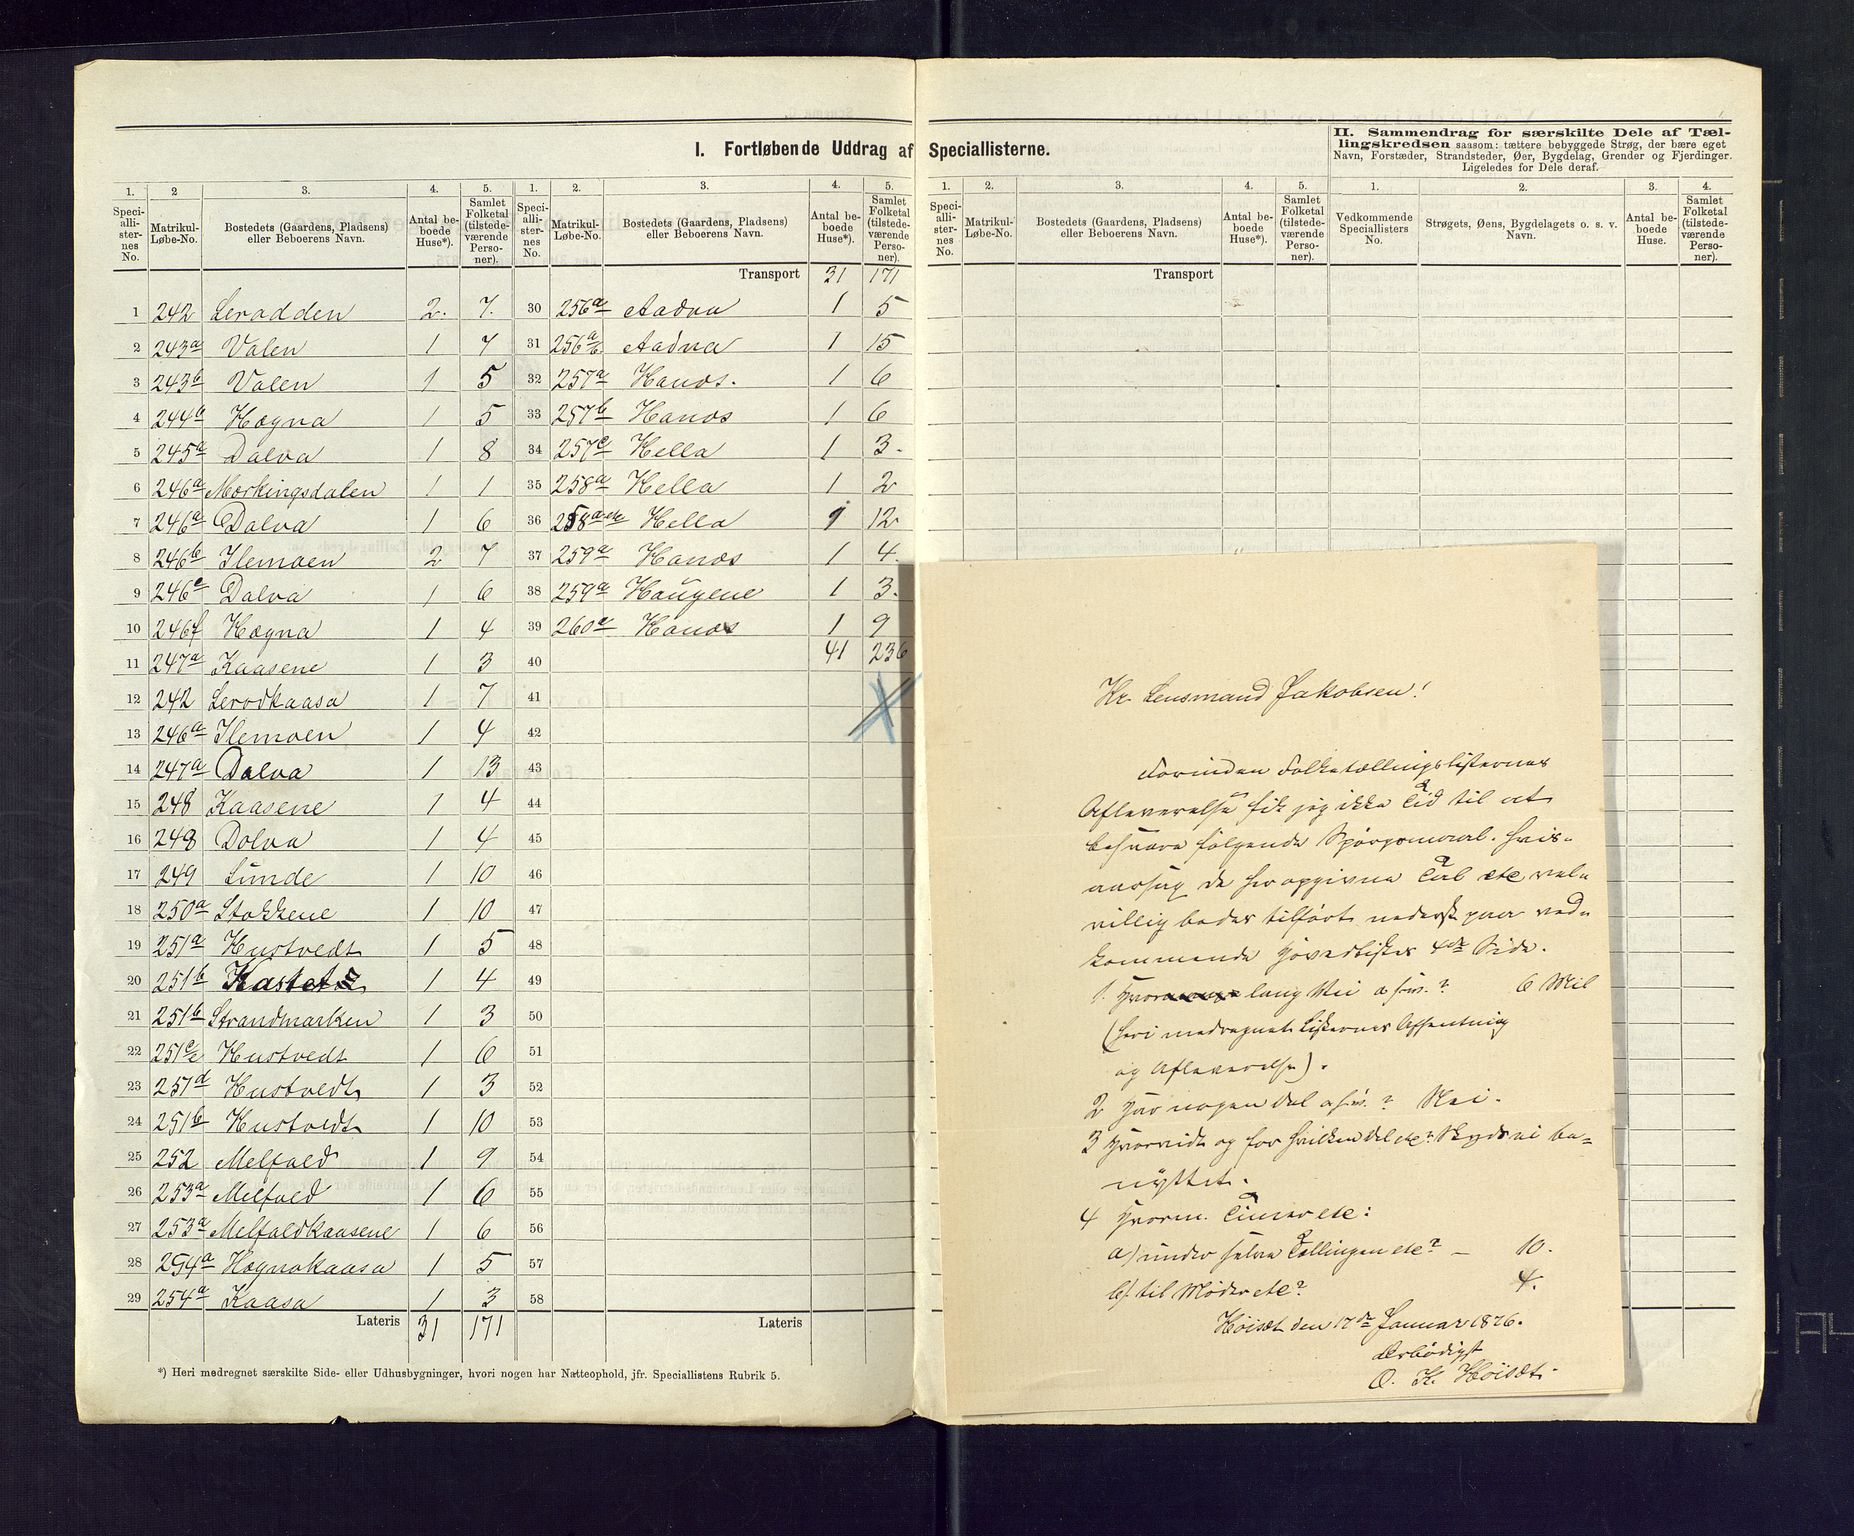 I. Fortløbende Uddrag af Speciallisterne.
1. 2 3. 4. 5.
Speciallisternes No. Matrikul-Løbe-No. Bostedets (Gaardens, Pladsens) eller Beboerens Navn. Antal beboede Huse*). Samlet Folketal (tilstedeværende Personer).
1 242 Lerodden 2. 7.
2 243a Valen 1 7
3 243b Valen 1 5
4 244a Høgna 1 5
5 245a Dalva 1 8
6 246a Mørkingsdalen 1 1
7 246a Dalva 1 6
8 246b Ilemoen 2 7
9 246e Dalva 1 6
10 246f Høgna 1 4
11 247a Kaasene 1 3
12 242 Lerodkaasa 1 7
13 246a Ilemoen 1 4
14 247a Dalva 1 13
15 248 Kaasene 1 4
16 248 Dolva 1 4
17 249 Lunde 1 10
18 250a Stokkene 1 10
19 251a Hustvedt 1 5
20 251b 1 4
21 251b Strandmarken 1 3
22 251c Hustvedt 1 6
23 251d Hustvedt 1 3
24 251b Hustvedt 1 10
25 252 Melfald 1 9
26 253a Melfald 1 6
27 253a Melfaldkaasene 1 6
28 254a Høgnakaasa 1 5
29 254a Kaasa 1 3
Lateris 31 171
1. 2. 3. 4. 5.
Speciallisternes No. Matrikul-Løbe-No. Bostedets (Gaardens, Pladsens) eller Beboerens Navn. Antal beboede Huse*). Samlet Folketal (tilstedeværende Personer).
Transport 31 171
30 256a Aadna 1 5
31 256a/b Aadna 1 15
32 257a Hanos. 1 6
33 257b Hanos 1 6
34 257c Hella 1 3.
35 258a Hella 1 2
36 258a etc Hella 1 12
37 259a Hanos 1 4.
38 259a Haugene 1 3.
39 260a Hanos 1 9
40 41 236
41
42
43
44
45
46
47
48
49
50
51
52
53
54
55
56
57
58
Lateris
*) Heri medregnet særskilte Side- eller Udhusbygninger, hvori nogen har Natteophold, jfr. Speciallistens Rubrik 5.
1. 2. 3. 4. 5.
Speciallisternes No. Matrikul-Løbe-No. Bostedets (Gaardens, Pladsens) eller Beboerens Navn. Antal beboede Huse*). Samlet Folketal (tilstedeværende Personer).
Transport
II. Sammendrag for særskilte Dele af Tæl-
lingskredsen saasom: tættere bebyggede Strøg, der bære eget
Navn, Forstæder, Strandsteder, Øer, Bygdelag, Grender og Fjerdinger.
Ligeledes for Dele deraf.
1. 2. 3. 4.
Vedkommende Speciallisters No. Strøgets, Øens, Bygdelagets o. s. v. Navn. Antal beboede Huse. Samlet Folketal (tilstedeværende Personer).
Hr. Lensmand Jakobsen!
Forinden Folketællingslisternes
Afleverelse fik jeg ikke Tid til at
besvare følgende Spørgsmaal. Hvis-
aarsag de her opgivne Tal etc vel-
villig bedes tilført nederst paa ved-
kommende Hovedlistes 4de Side.
1. Hvor lang Vei 6 Mil
(heri medregnet Listernes Afhentning
og Afleverelse).
2 Har nogen Del Nei.
3 Hvorvidt og for hvilken Del etc? Skyds ei be-
nyttet.
4 Hvorm. Timer etc:
a) under selve Tællingen etc? — 10.
b) til Møder etc? 4.
Høisæt den 17de Januar 1876.
Ærbødigst
O. K. Høisæt